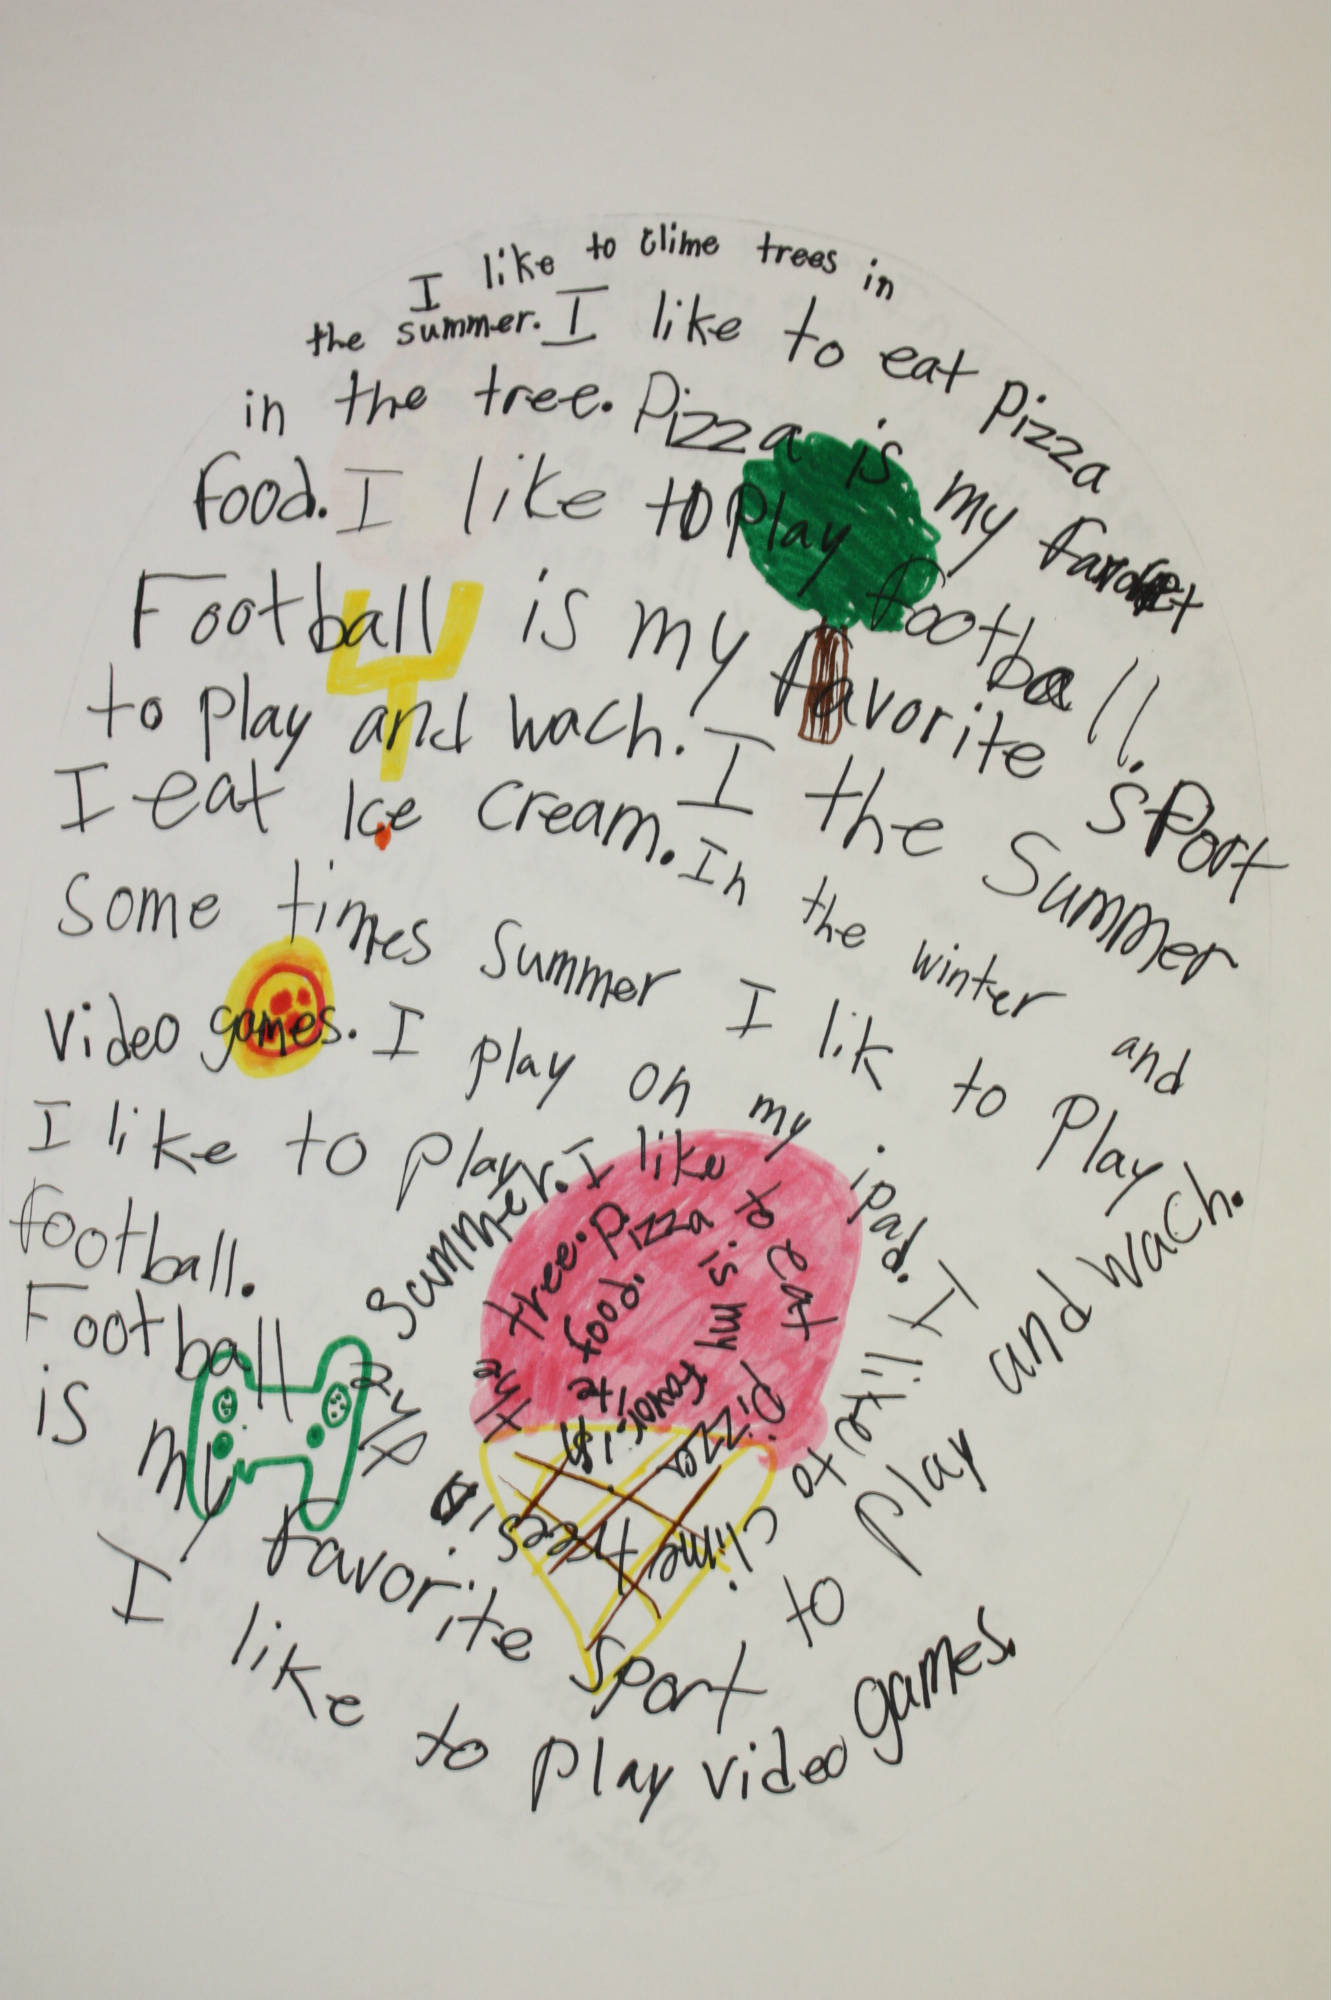 I like to clime trees in
the summer. I like to eat pizza
in the tree. Pizza is my
food. I like to play football.
Football is my favorite sport
to play and wach. I the Summer
I eat Ice cream. In the winter and
some times summer I lik to Play
video games. I play on my ipad. I like to clime trees in the
summer. I like to eat pizza
the tree. Pizza is my favorite food.
I like to play
football.
Football
is my favorite sport to play and wach.
I like to play video games.